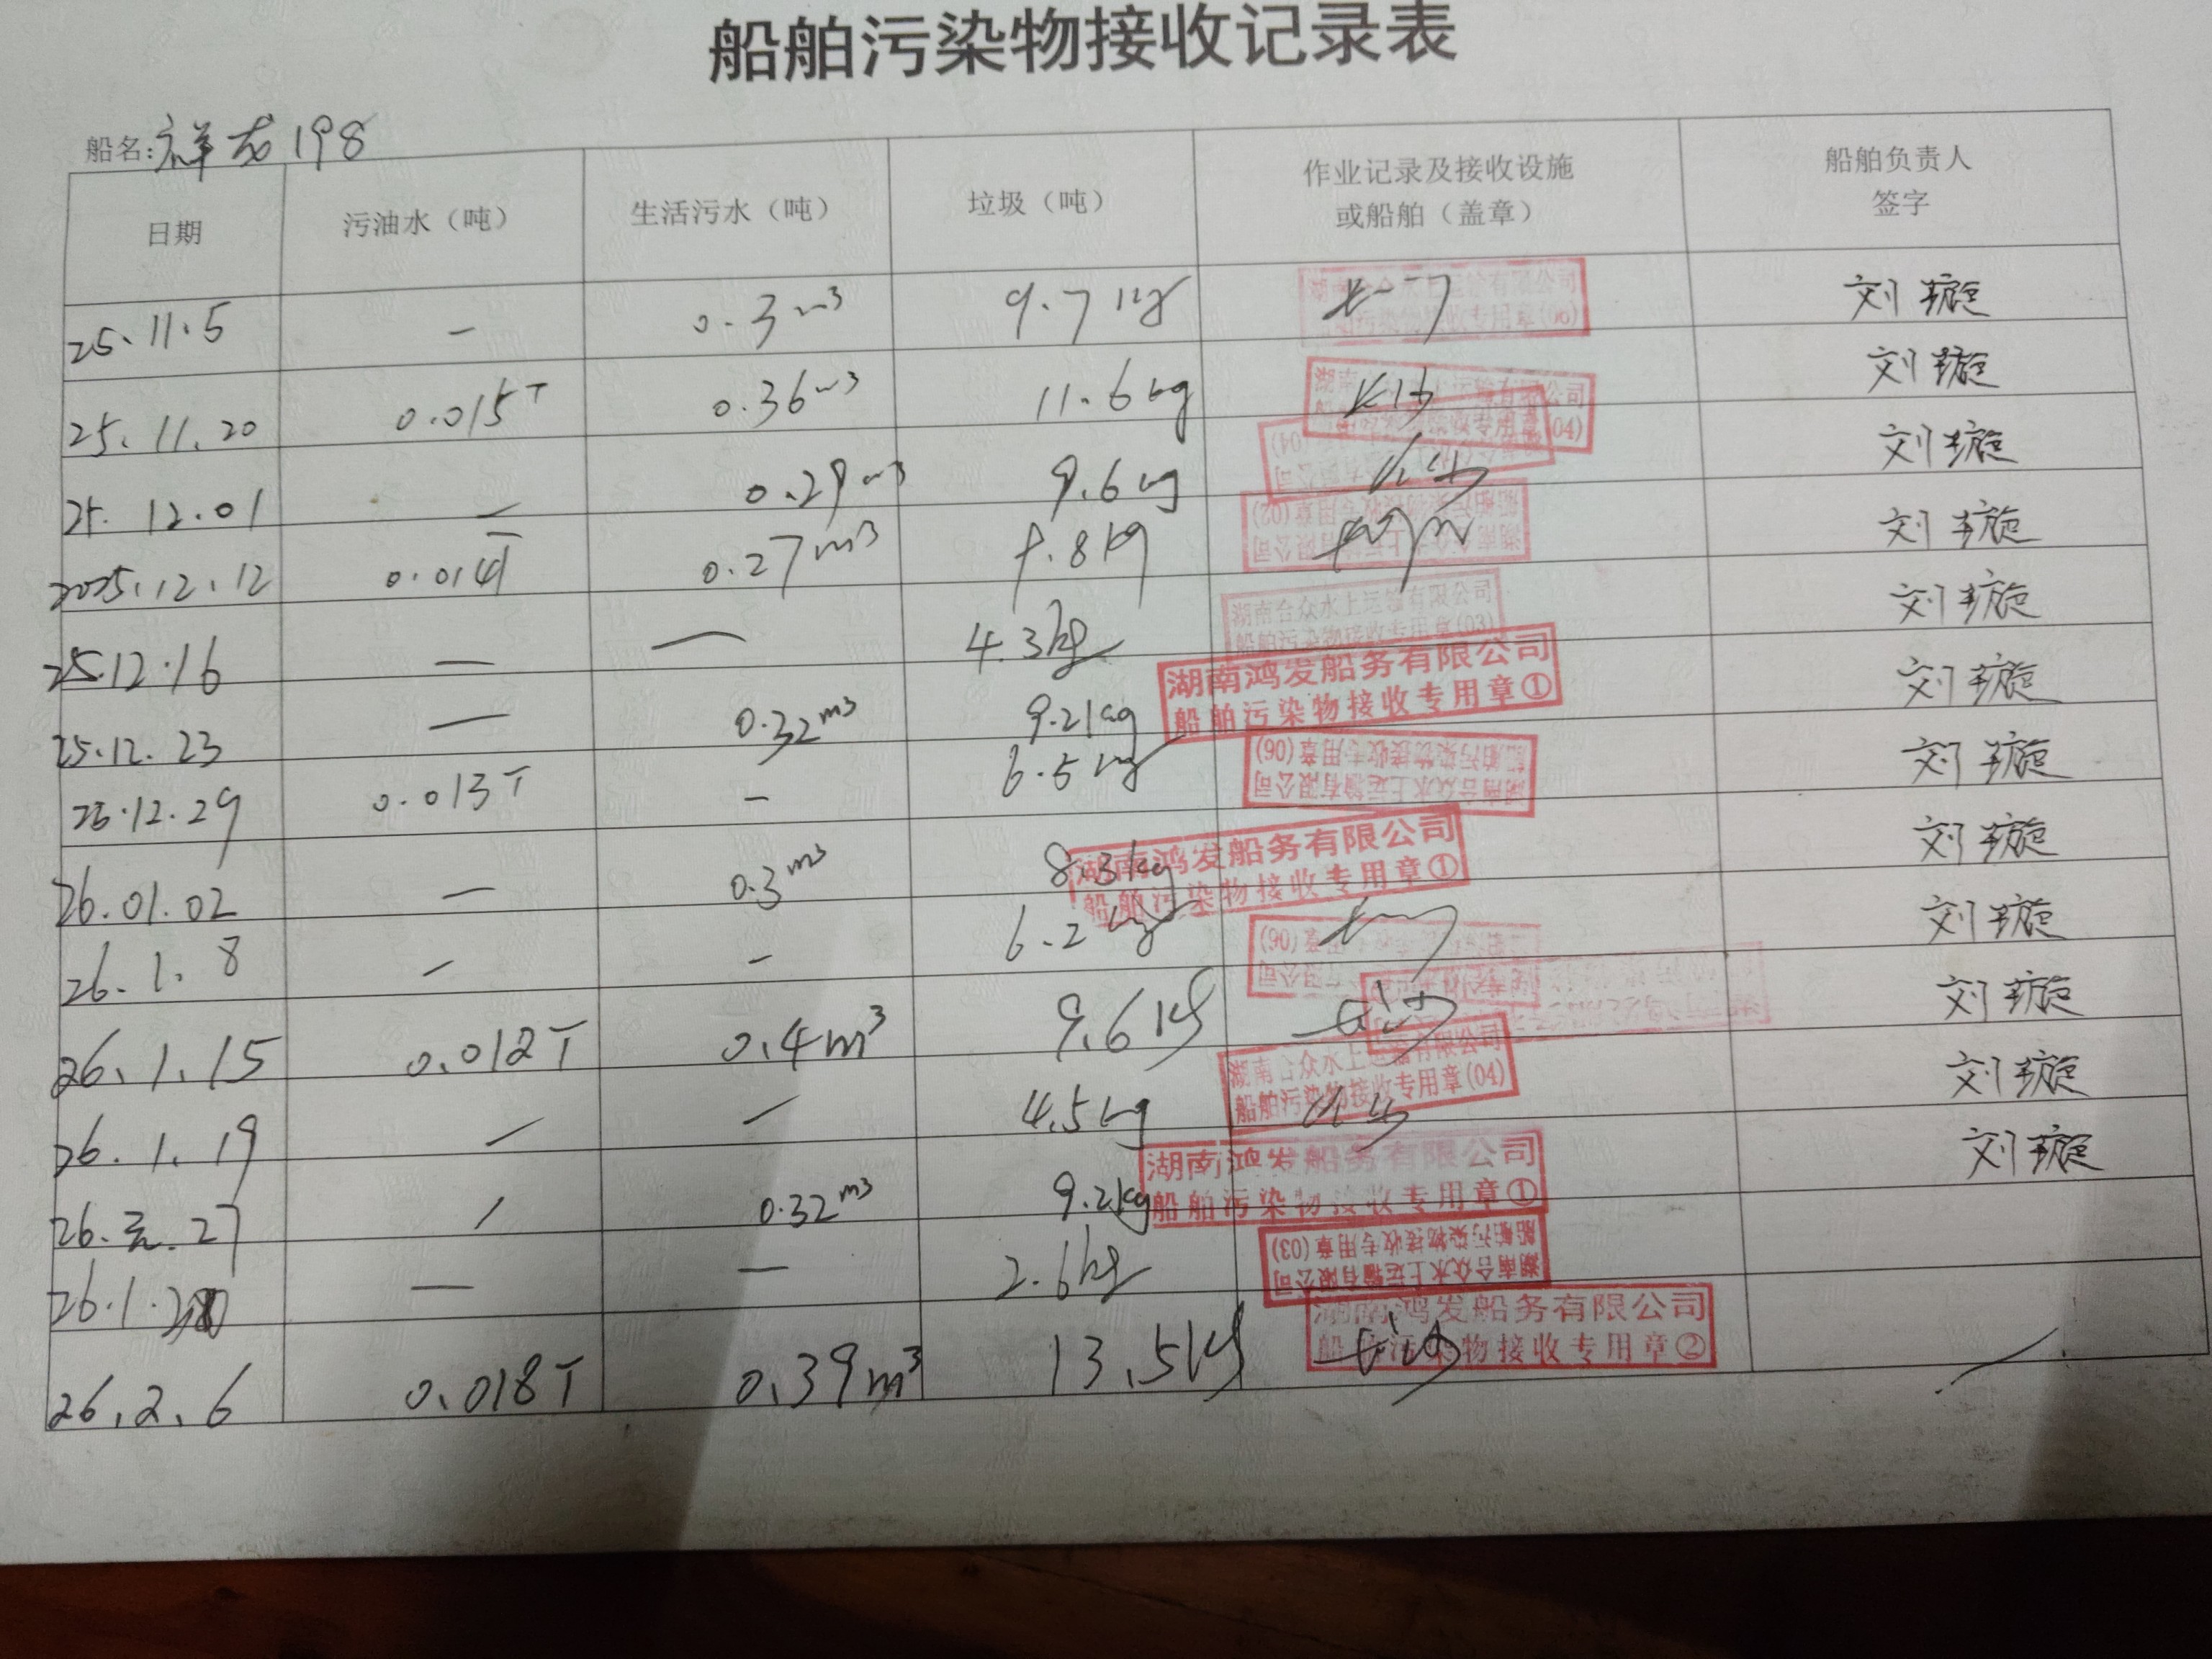 船舶污染物接收记录表
船名: 祥龙198
日期 污油水（吨） 生活污水（吨） 垃圾（吨） 作业记录及接收设施或船舶（盖章） 船舶负责人签字
25.11.5 — 0.3m³ 9.7kg 湖南合众水上运输有限公司 船舶污染物接收专用章(06) 刘璇
25.11.20 0.015T 0.36m³ 11.6kg 湖南合众水上运输有限公司 船舶污染物接收专用章(04) 刘璇
25.12.01 — 0.29m³ 9.6kg (04) 刘璇
2025.12.12 0.014T 0.27m³ 9.8kg 湖南合众水上运输有限公司 船舶污染物接收专用章(02) 刘璇
25.12.16 — — 4.3kg 湖南合众水上运输有限公司 船舶污染物接收专用章(03) 刘璇
25.12.23 — 0.32m³ 9.2kg 湖南鸿发船务有限公司 船舶污染物接收专用章① 刘璇
25.12.29 0.013T — 6.5kg 湖南合众水上运输有限公司 船舶污染物接收专用章(06) 刘璇
26.01.02 — 0.3m³ 8.3kg 湖南鸿发船务有限公司 船舶污染物接收专用章① 刘璇
26.1.8 — — 6.2kg (06) 刘璇
26.1.15 0.012T 0.4m³ 9.6kg 刘璇
26.1.19 / / 4.5kg 湖南合众水上运输有限公司 船舶污染物接收专用章(04) 刘璇
26.元.27 / 0.32m³ 9.2kg 湖南鸿发船务有限公司 船舶污染物接收专用章① 刘璇
26.1. — — 2.6kg 湖南合众水上运输有限公司 船舶污染物接收专用章(03)
26.2.6 0.018T 0.39m³ 13.5kg 湖南鸿发船务有限公司 船舶污染物接收专用章②